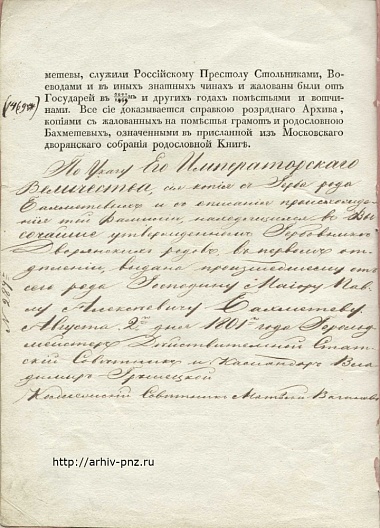 метевы, служили Россiйскому Престолу Стольниками, Во-
еводами и въ иныхъ знатныхъ чинахъ и жалованы были отъ
Государей въ и другихъ годахъ помѣстьями и вотчи-
нами. Все сiе доказывается справкою розряднаго Архива,
копiями съ жалованныхъ на помѣстья грамотъ и родословною
Бахметевыхъ, означенными въ присланной изъ Московскаго
дворянскаго собранiя родословной Книгѣ.
По Указу Его Императорскаго
Величества, сiя копiя съ Герба рода
Бахметевыхъ и съ описанiя происхожде-
нiя той Фамилiи, находящихся въ Вы-
сочайше утвержденномъ Гербовникѣ
Дворянскихъ родовъ, въ первомъ от-
дѣленiи, выдана произшедшему отъ
сего рода Господину Маiору Пав-
лу Алексѣевичу Бахметеву.
Августа 2 дня 1801 года Герольд-
мейстеръ Дѣйствительной Стат-
скiй Совѣтникъ и Кавалеръ Вла-
димиръ Грушецкой
Совѣтникъ Матвѣй
http://arhiv-pnz.ru